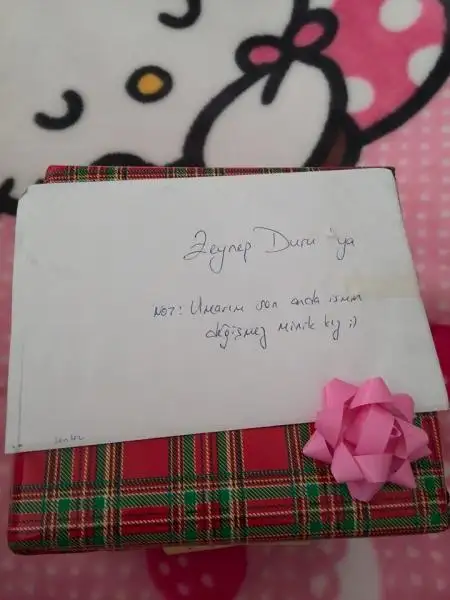 Zeynep Duru'ya
NOT: Umarım son anda ismin
değişmez minik kız ;)